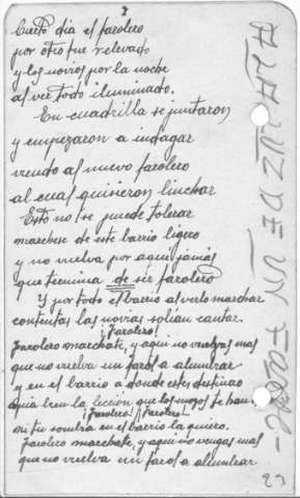 3
Cierto dia el farolero
por otro fue relevado
y los novios por la noche
al ver todo iluminado.
En cuadrilla se juntaron
y empezaron a indagar
viendo al nuevo farolero
al cual quisieron linchar
Esto no se puede tolerar
marchese de este barrio ligero
y no vuelva por aqui jamás
que termina de ser farolero
Y por todo el barrio al verlo marchar
contentas las novias solian cantar.
¡Farolero!
Farolero marchate, y aqui no vuelvas mas
que no vuelva un farol a alumbrar
y en el barrio a donde estes
la lección que los mozos te han
¡Farolero! ¡Farolero!
ni tu sombra en el barrio la quiero.
Farolero marchate, y aqui no vengas mas
que no vuelva un farol a alumbrar
23